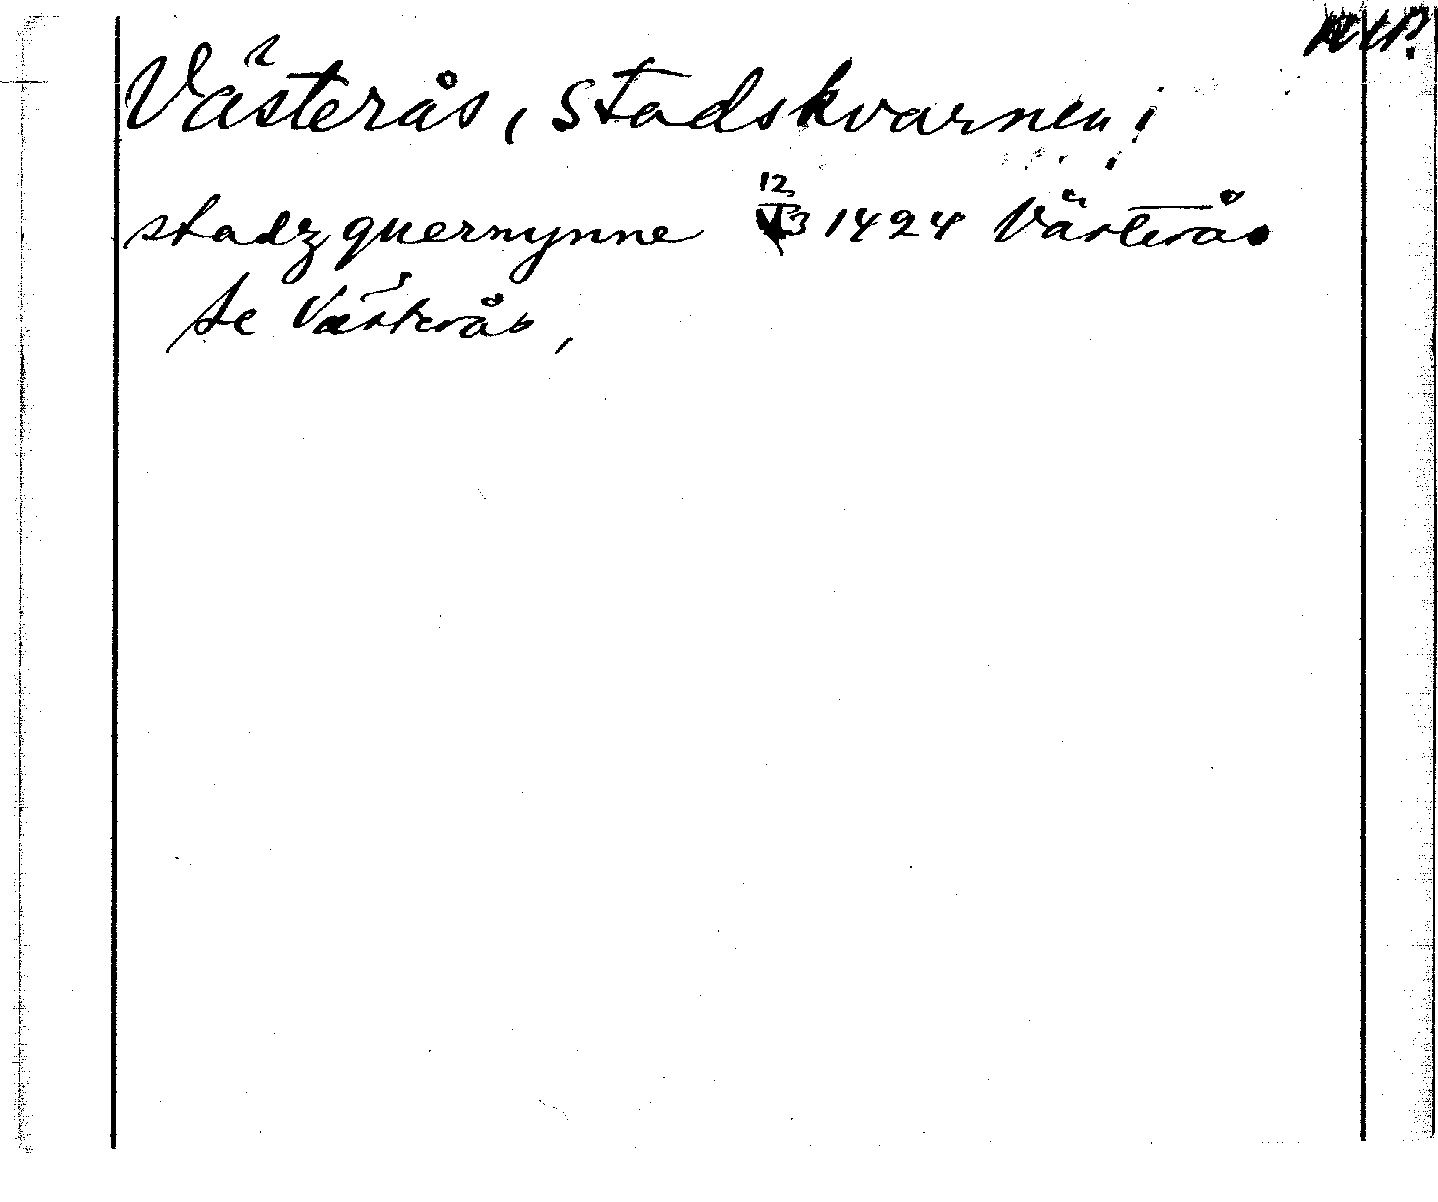 Västerås, Stadskvarnen i
stadzquernynne 12/3 1424 Västerås
se Västerås,